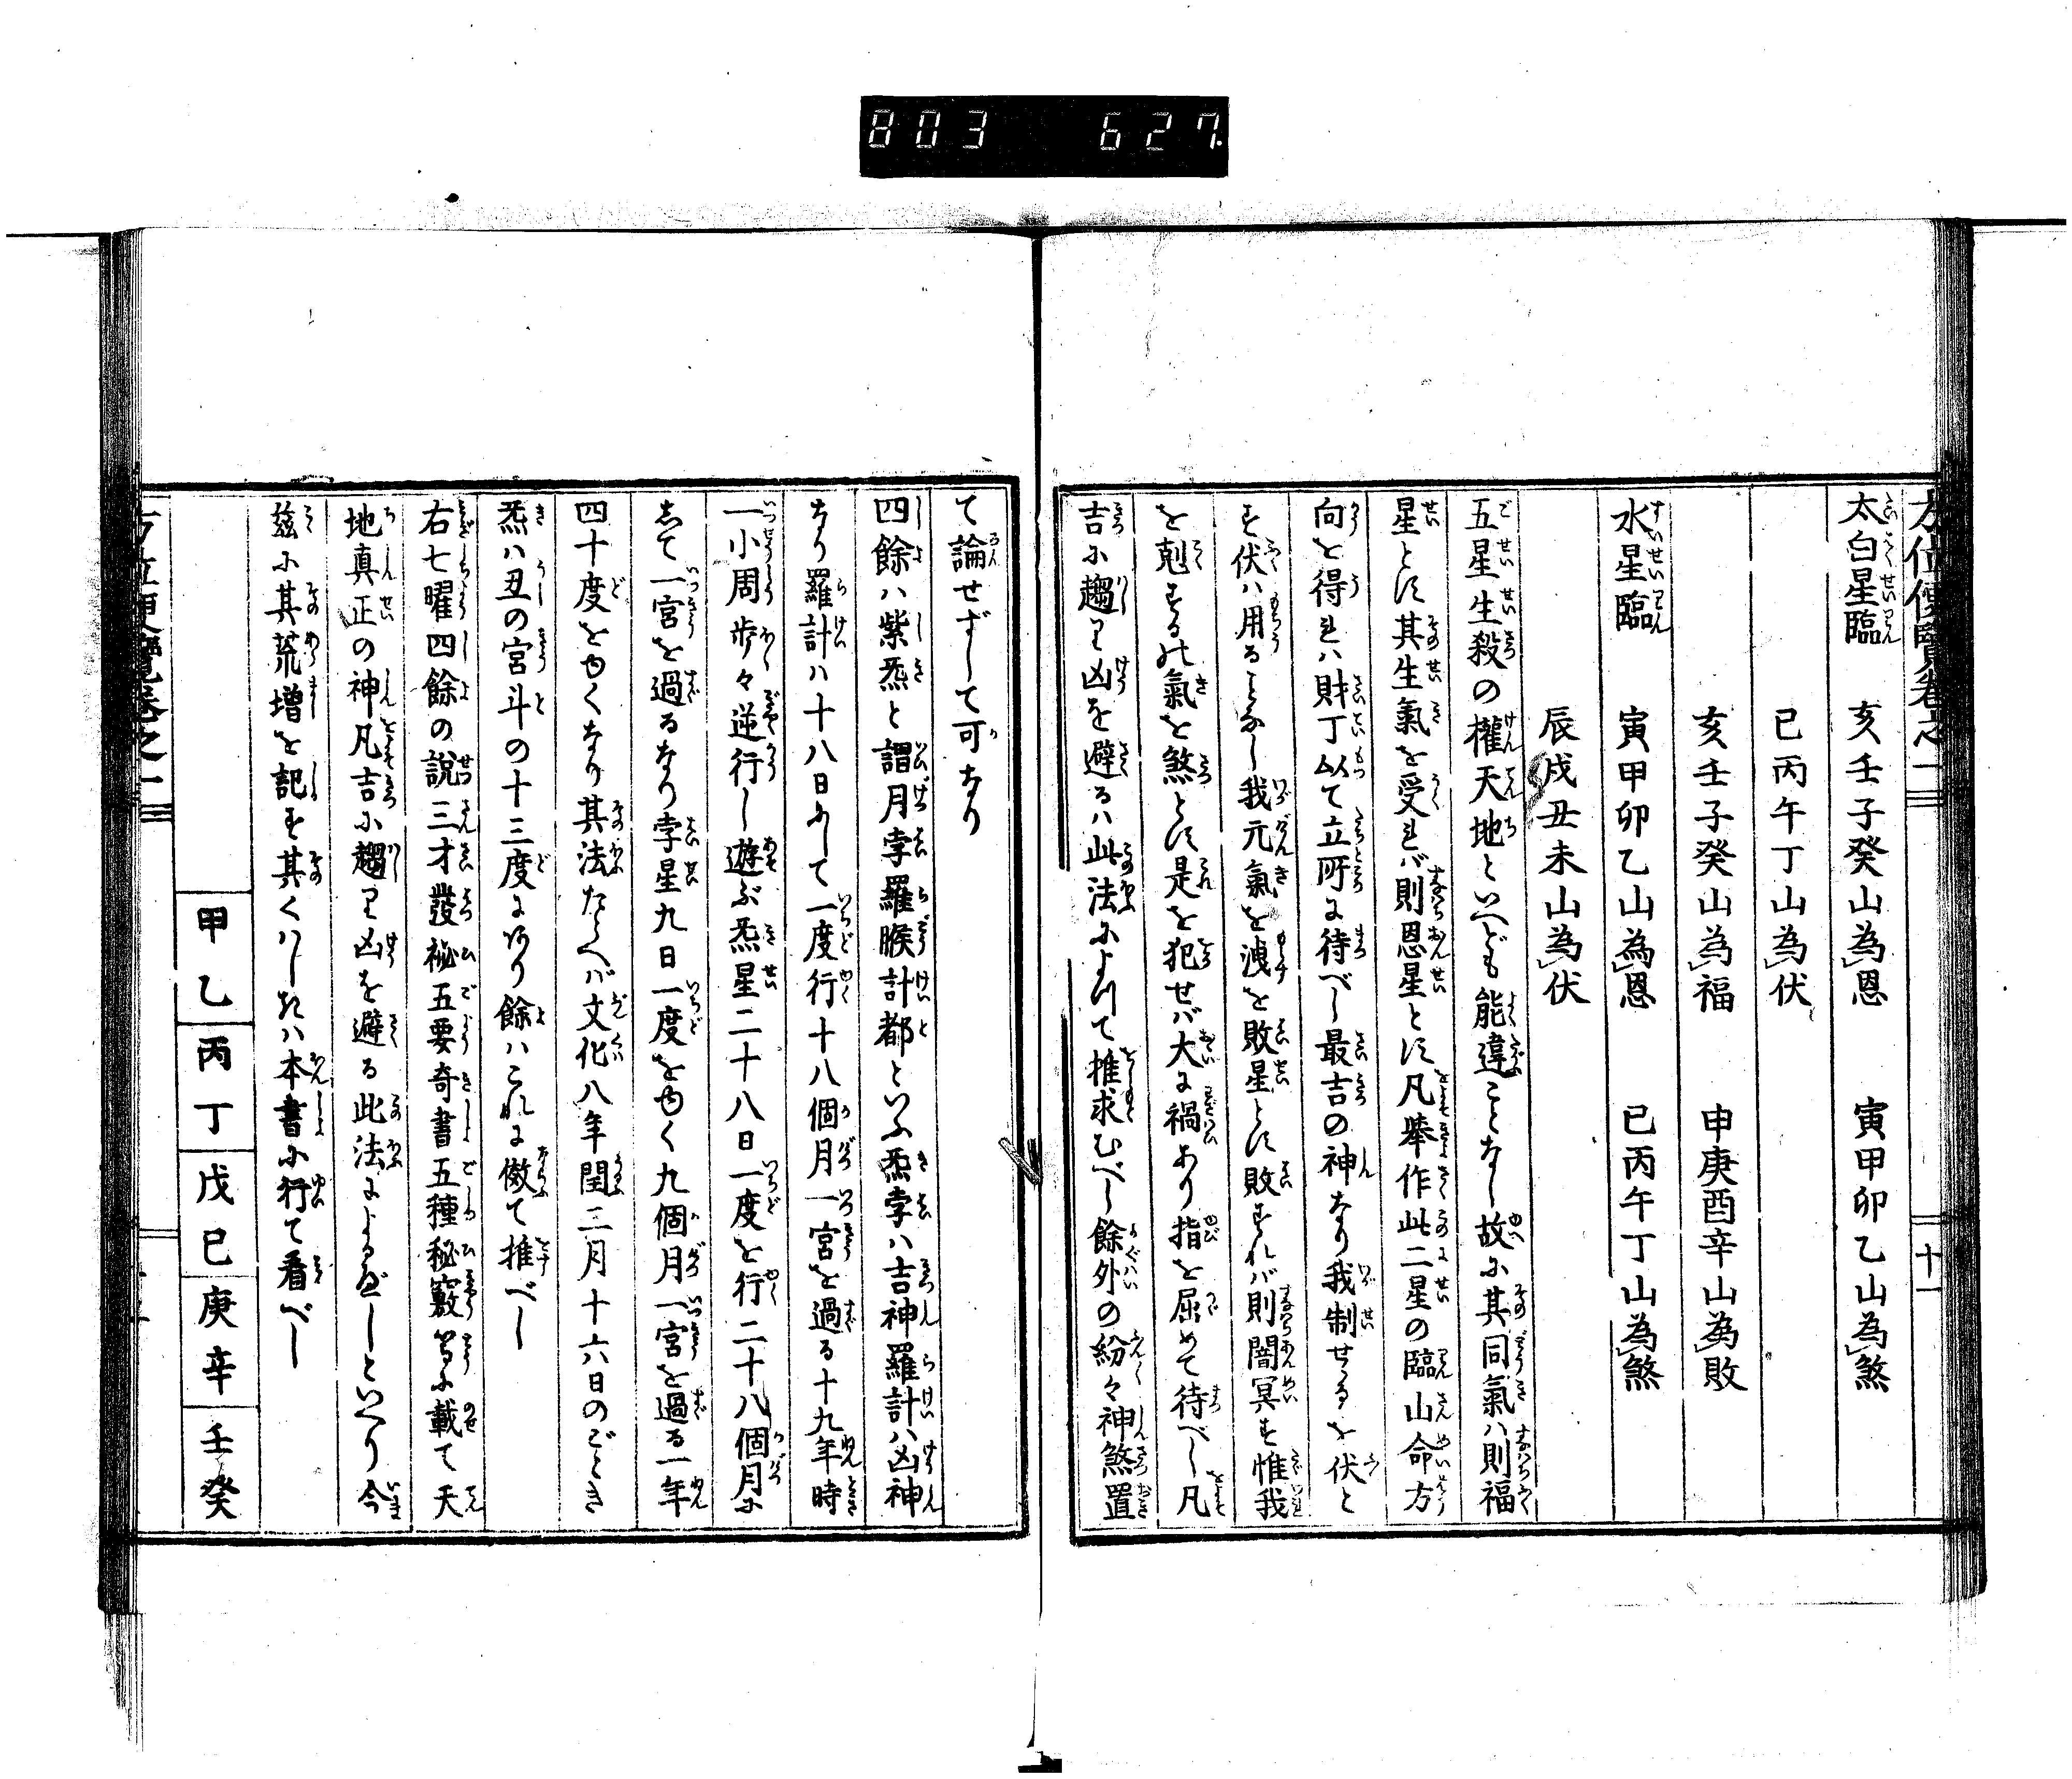 803 627.
方位便覽卷之一
十一
太白星臨 亥壬子癸山為恩 寅甲卯乙山為煞
巳丙午丁山為伏
亥壬子癸山為福 申庚酉辛山為敗
水星臨 寅甲卯乙山為恩 巳丙午丁山為煞
辰戌丑未山為伏
五星生殺の權天地といへども能違ことなし故に其同氣ハ則福
星とす其生氣を受れバ則恩星とす凡擧作此二星の臨山命方
向を得れハ財丁以て立所に待べし最吉の神なり我制せるを伏と
す伏ハ用ることなし我元氣を洩を敗星とす敗すれバ則闇冥す惟我
を剋するの氣を煞とす是を犯せバ大に禍あり指を屈めて待べし凡
吉に趨り凶を避るハ此法によりて推求むべし餘外の紛々神煞置
て論せずして可なり
四餘ハ紫炁と謂月孛羅睺計都といふ炁孛ハ吉神羅計ハ凶神
なり羅計ハ十八日にして一度行十八個月一宮を過る十九年時
一小周歩々逆行し遊ぶ炁星二十八日一度を行二十八個月に
して一宮を過るなり孛星九日一度をゆく九個月一宮を過る一年
四十度をゆくなり其法たとへバ文化八年閏二月十六日のごとき
炁ハ丑の宮斗の十三度にあり餘ハこれに傚て推べし
右七曜四餘の說三才發祕五要奇書五種秘竅等に載て天
地真正の神凡吉に趨り凶を避る此法によるべしといへり今
茲に其荒増を記す其くハしきハ本書に行て看べし
甲乙丙丁戊己庚辛壬癸
方位便覽卷之一